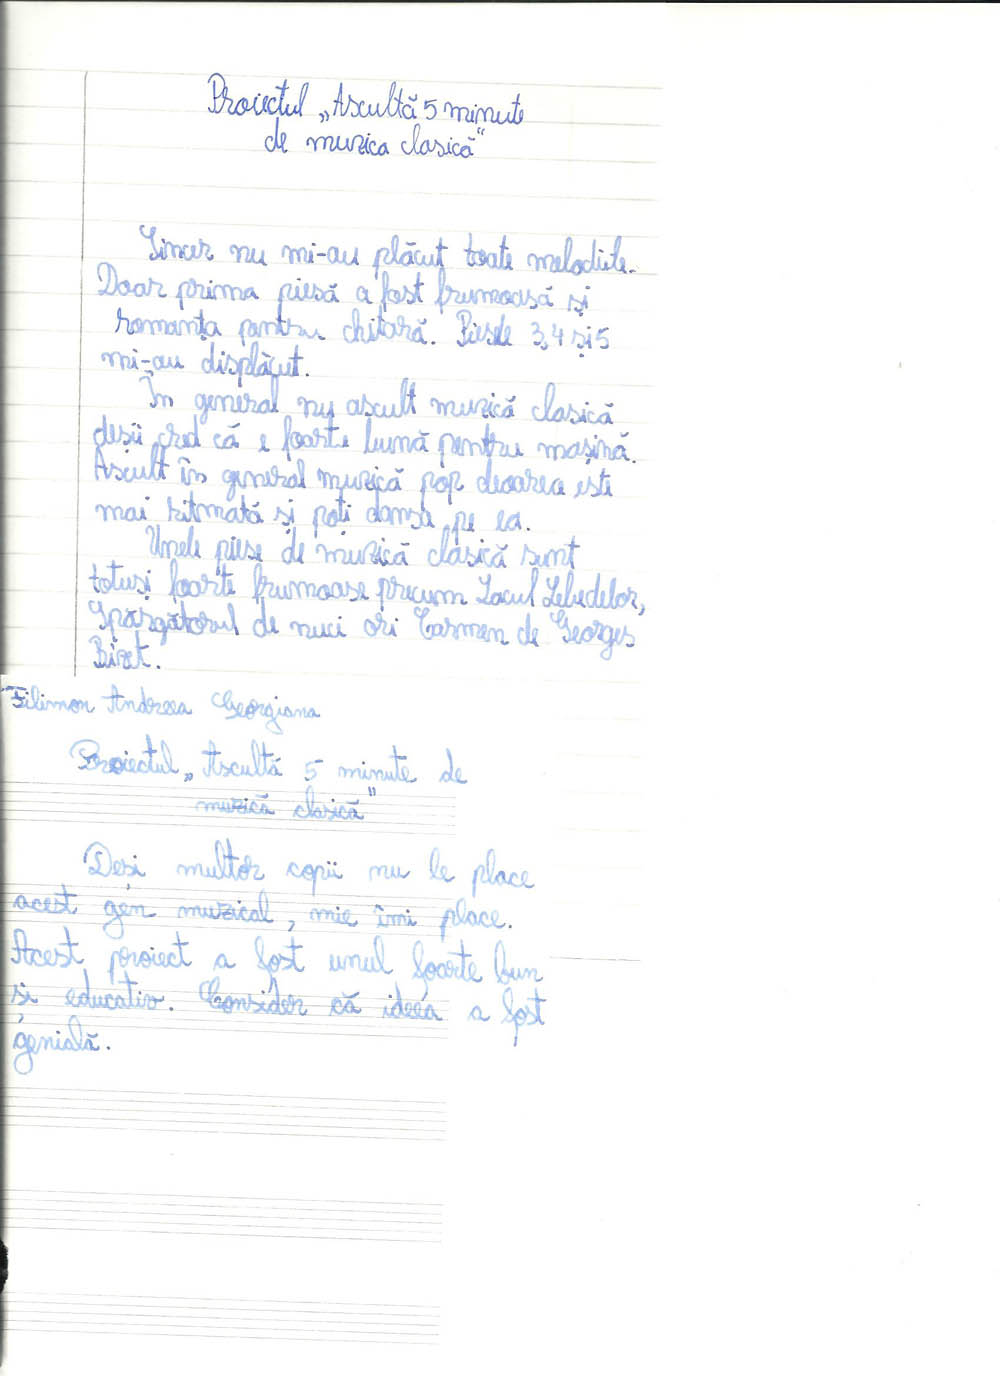 Proiectul „Ascultă 5 minute
de muzica clasică"
Sincer nu mi-au plăcut toate melodiile.
Doar prima piesă a fost frumoasă și
romanța pentru chitară. Piesele 3,4 și 5
mi-au displăcut.
În general nu ascult muzică clasică
deși cred că e foarte bună pentru mașină.
Ascult în general muzică pop deoarea este
mai ritmată și poți dansa pe ea.
Unele piese de muzică clasică sunt
totuși foarte frumoase precum Lacul Lebedelor,
Spărgătorul de nuci ori Carmen de Georges
Bizet.
Filimon Andreea Georgiana
Proiectul „Ascultă 5 minute de
muzică clasică"
Deși multor copii nu le place
acest gen muzical, mie îmi place.
Acest proiect a fost unul foarte bun
și educativ. Consider că ideea a fost
genială.